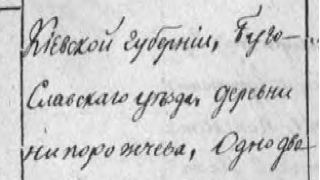 Кіевской губерніи, Буго-
Славскаго уезда, деревни
Нипорожчева, Однодво